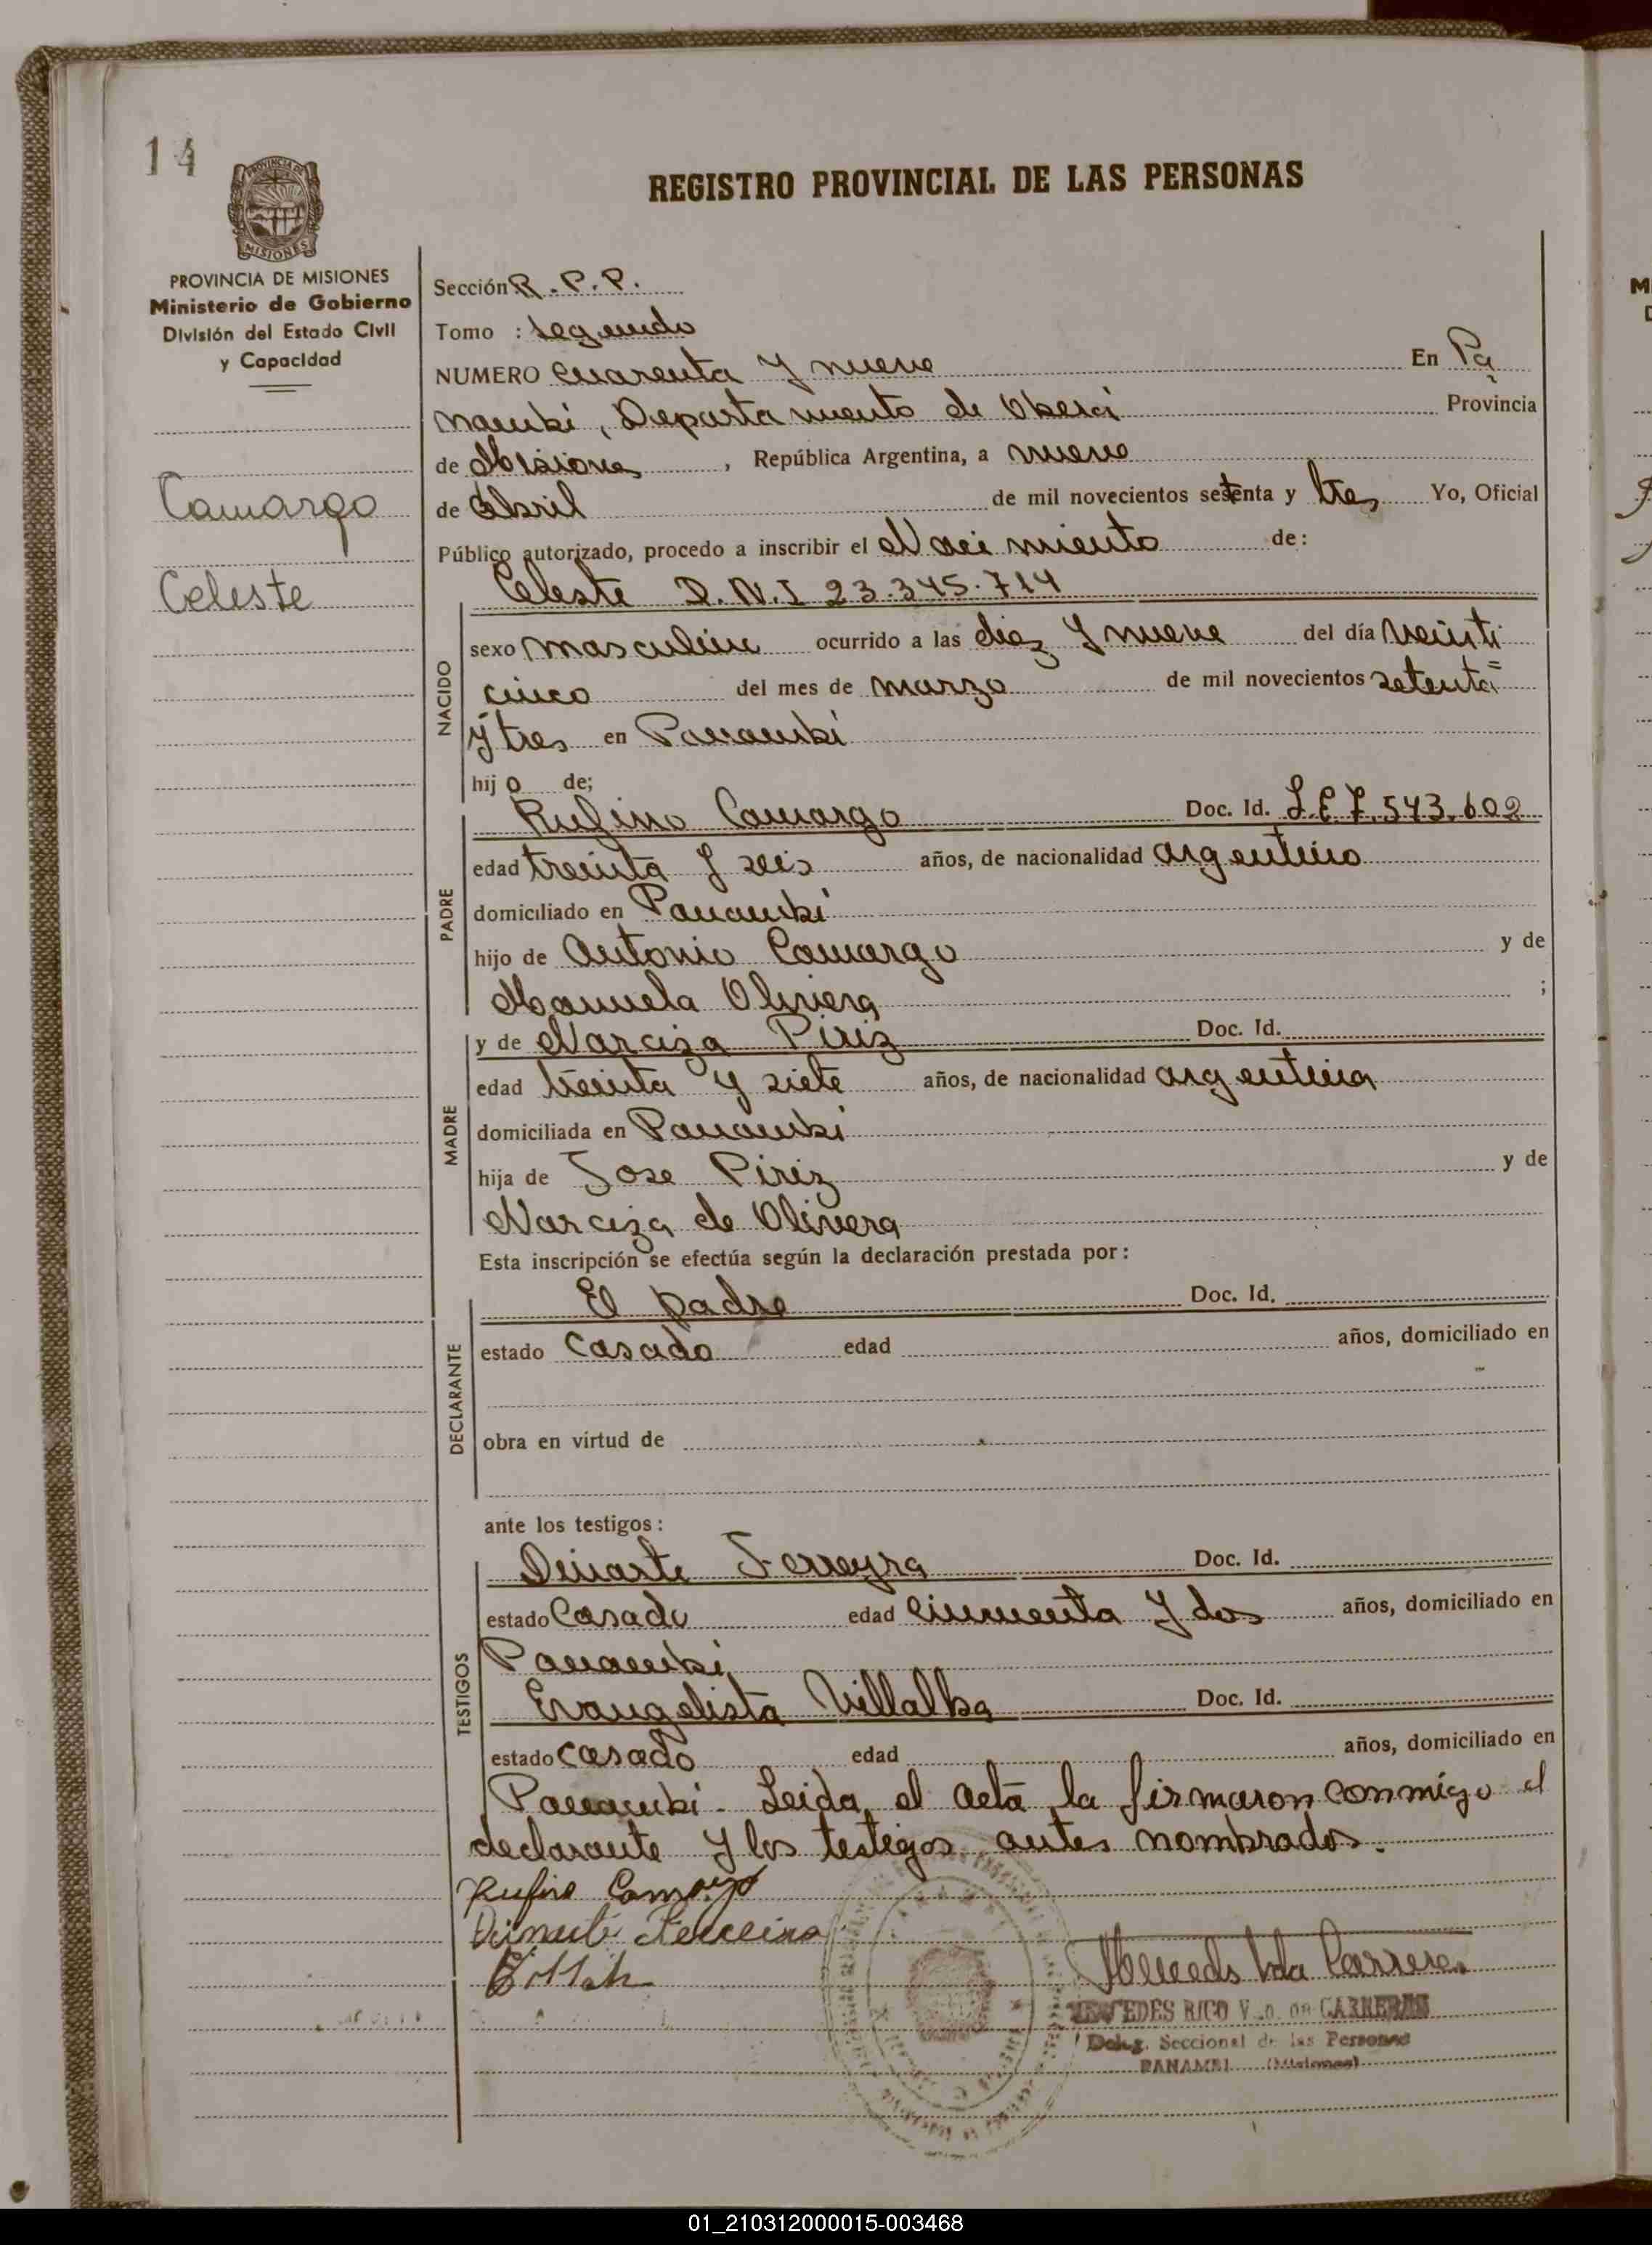 14
REGISTRO PROVINCIAL DE LAS PERSONAS
PROVINCIA DE MISIONES
Ministerio de Gobierno
División del Estado Civil
y Capacidad
Camargo
Celeste
Sección R.P.P.
Tomo : Segundo
NUMERO cuarenta y nueve En Pa
nambí, Departamento de Oberá Provincia
de Misiones, República Argentina, a nueve
de Abril de mil novecientos setenta y tres Yo, Oficial
Público autorizado, procedo a inscribir el Nacimiento de:
Celeste D.N.I 23.345.714
NACIDO
sexo masculino ocurrido a las diez y nueve del día veinti=
cinco del mes de marzo de mil novecientos setenta
y tres en Panambí
hijo de;
PADRE
Rufino Camargo Doc. Id. L.E 7.543.602
edad treinta y seis años, de nacionalidad argentino
domiciliado en Panambí
hijo de Antonio Camargo y de
Manuela Olivera ;
MADRE
y de Narciza Piriz Doc. Id.
edad treinta y siete años, de nacionalidad argentina
domiciliada en Panambí
hija de Jose Piriz y de
Narciza de Olivera
Esta inscripción se efectúa según la declaración prestada por:
DECLARANTE
El padre Doc. Id.
estado Casado edad años, domiciliado en
obra en virtud de
ante los testigos:
TESTIGOS
Dinarte Ferreyra Doc. Id.
estado Casado edad cincuenta y dos años, domiciliado en
Panambí
Evangelista Villalba Doc. Id.
estado casado edad años, domiciliado en
Panambí - Leida el acta la firmaron conmigo el
declarante y los testigos antes nombrados.
Rufino Camargo
Dinarte Ferreira
Mercedes Vda Carreras
MERCEDES RICO Vda. de CARRERAS
Deleg. Seccional de las Personas
PANAMBI (Misiones)
01_210312000015-003468